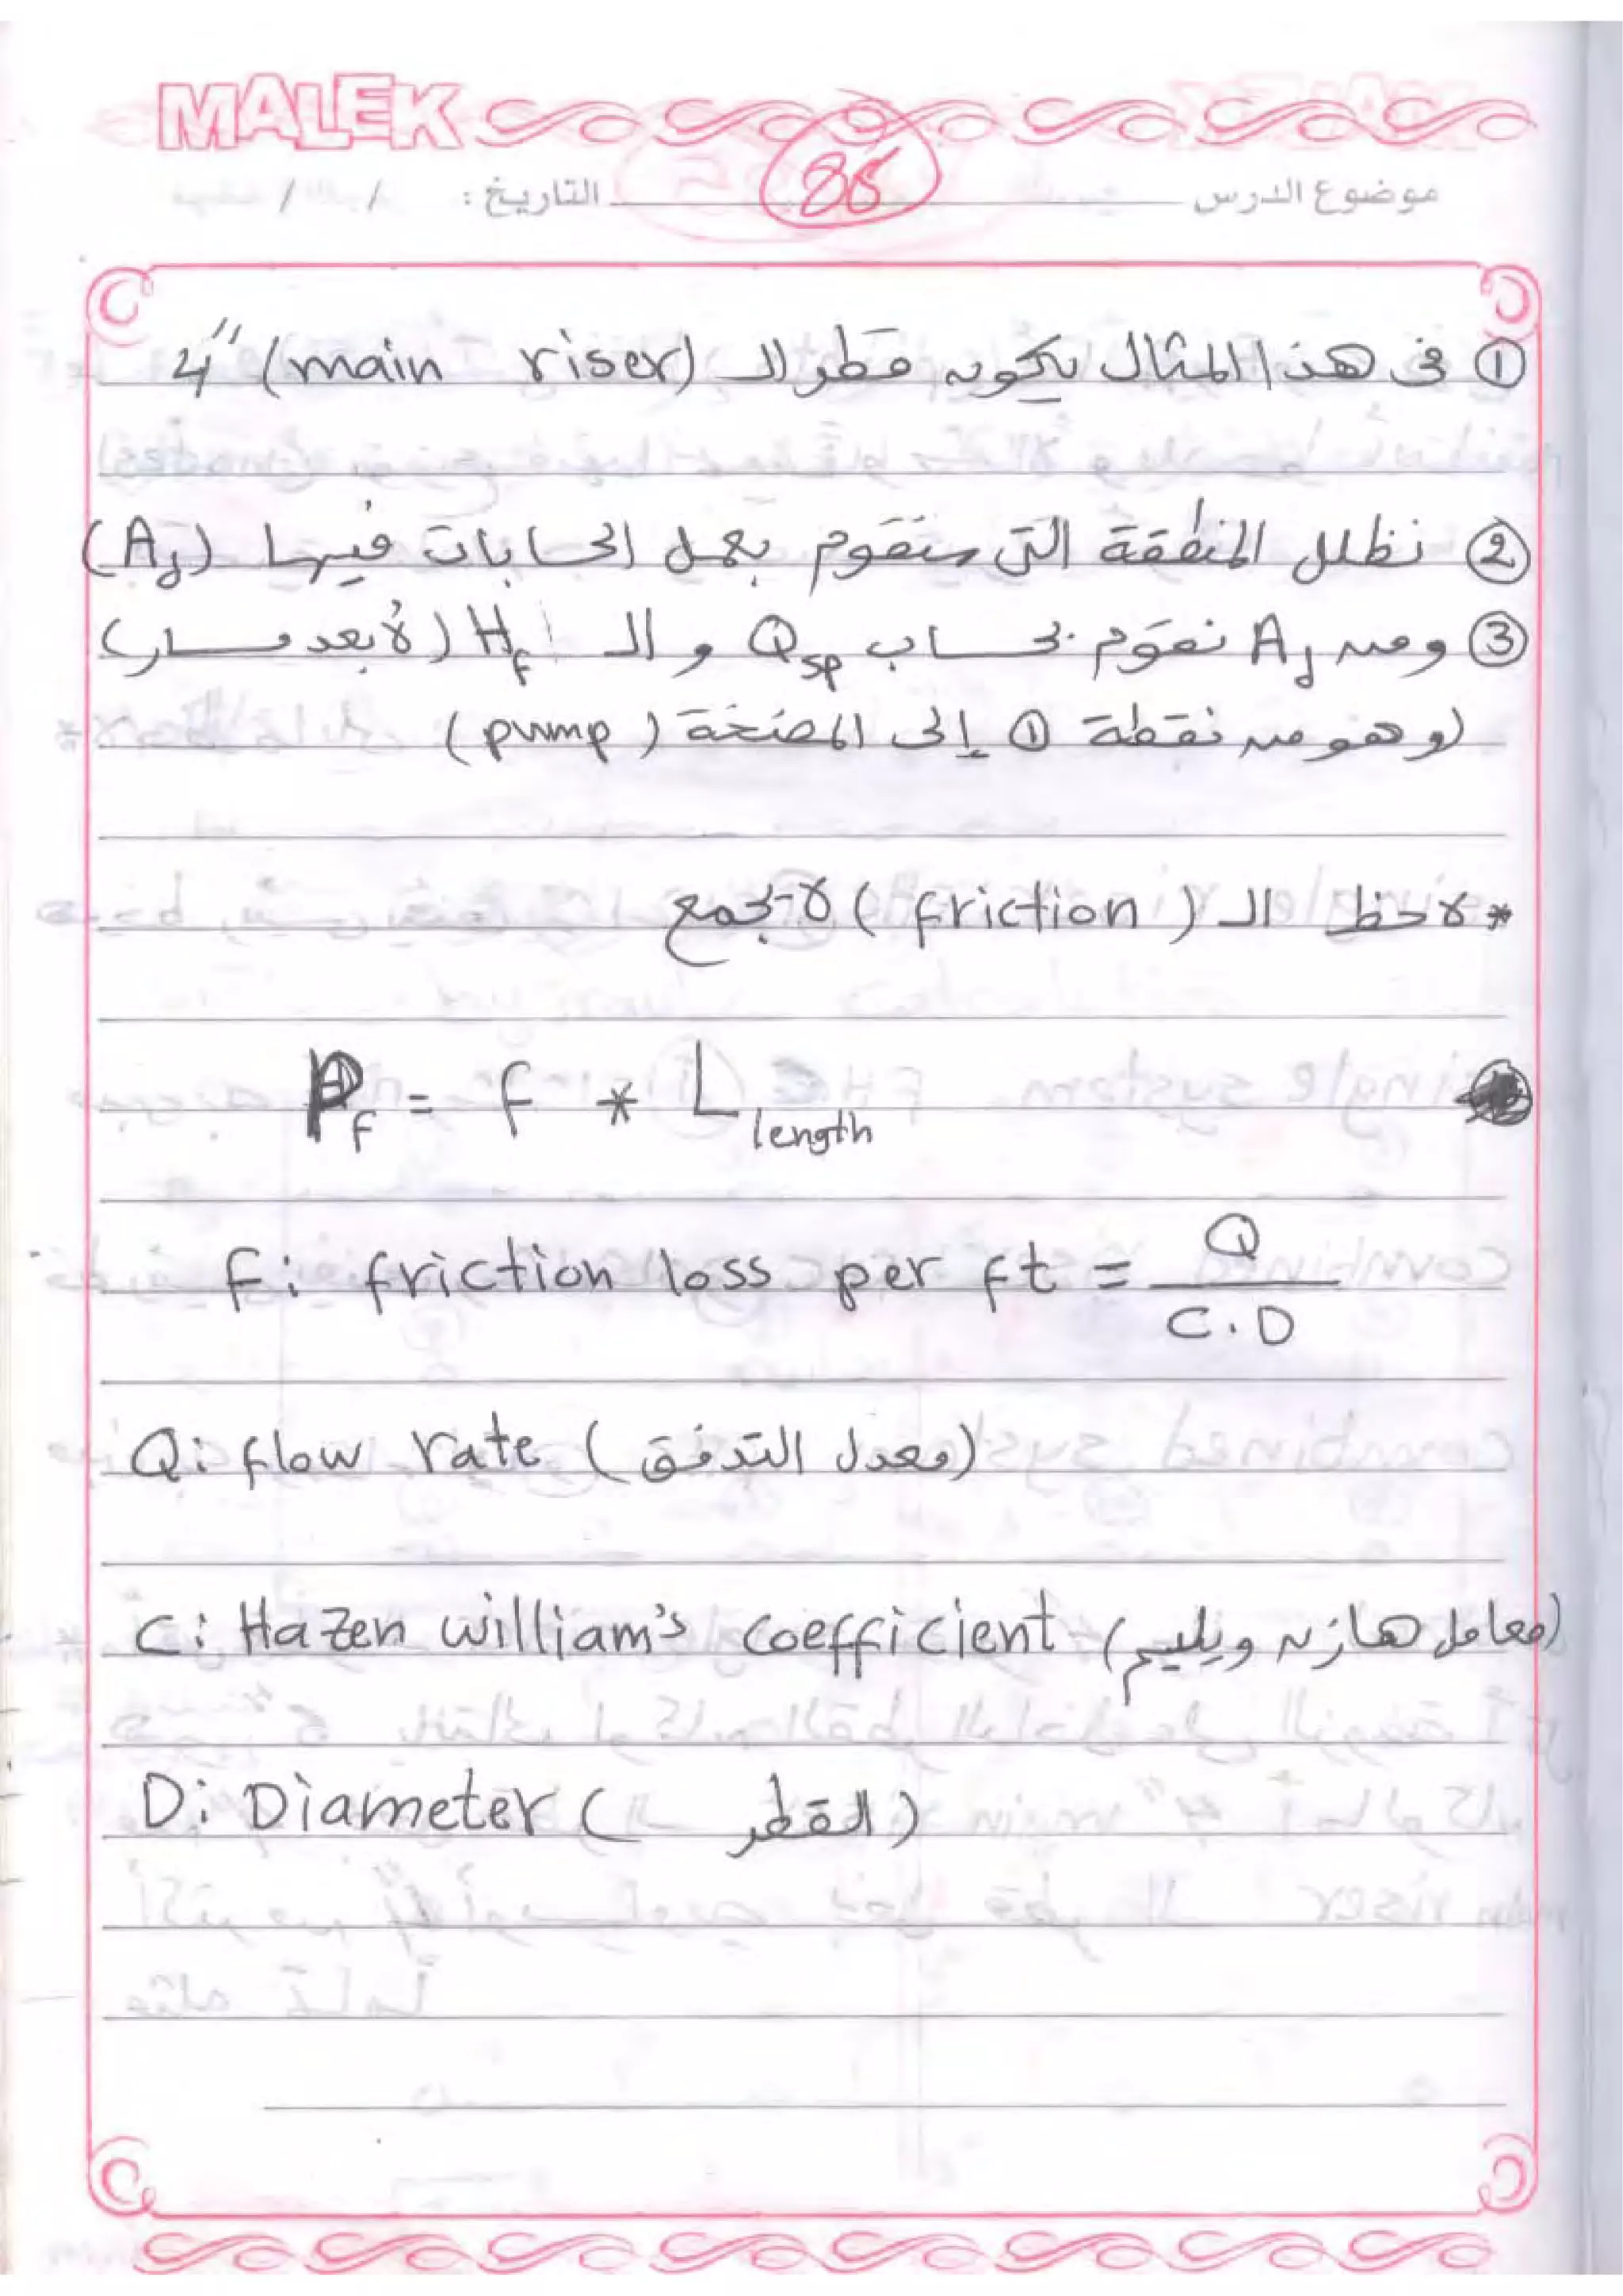 MALEK
86
موضوع الدرس التاريخ : / /
① فى هذا المثال يكون قطر الـ (main riser) 4"
② نظلل المنطقة التى سنقوم بعمل الحسابات فيها (Ad)
③ ومن Ad نقوم بحساب Qsp و الـ Hf (لأبعد مسار)
(وهو من نقطة ① إلى المضخة (pump)
* لاحظ الـ (friction) لا تجمع
Pf = f * L length
f: friction loss per ft = Q / C.D
Q: flow rate (معدل التدفق)
C: Hazen william's coefficient (معامل هازن ويليم)
D: Diameter (القطر)